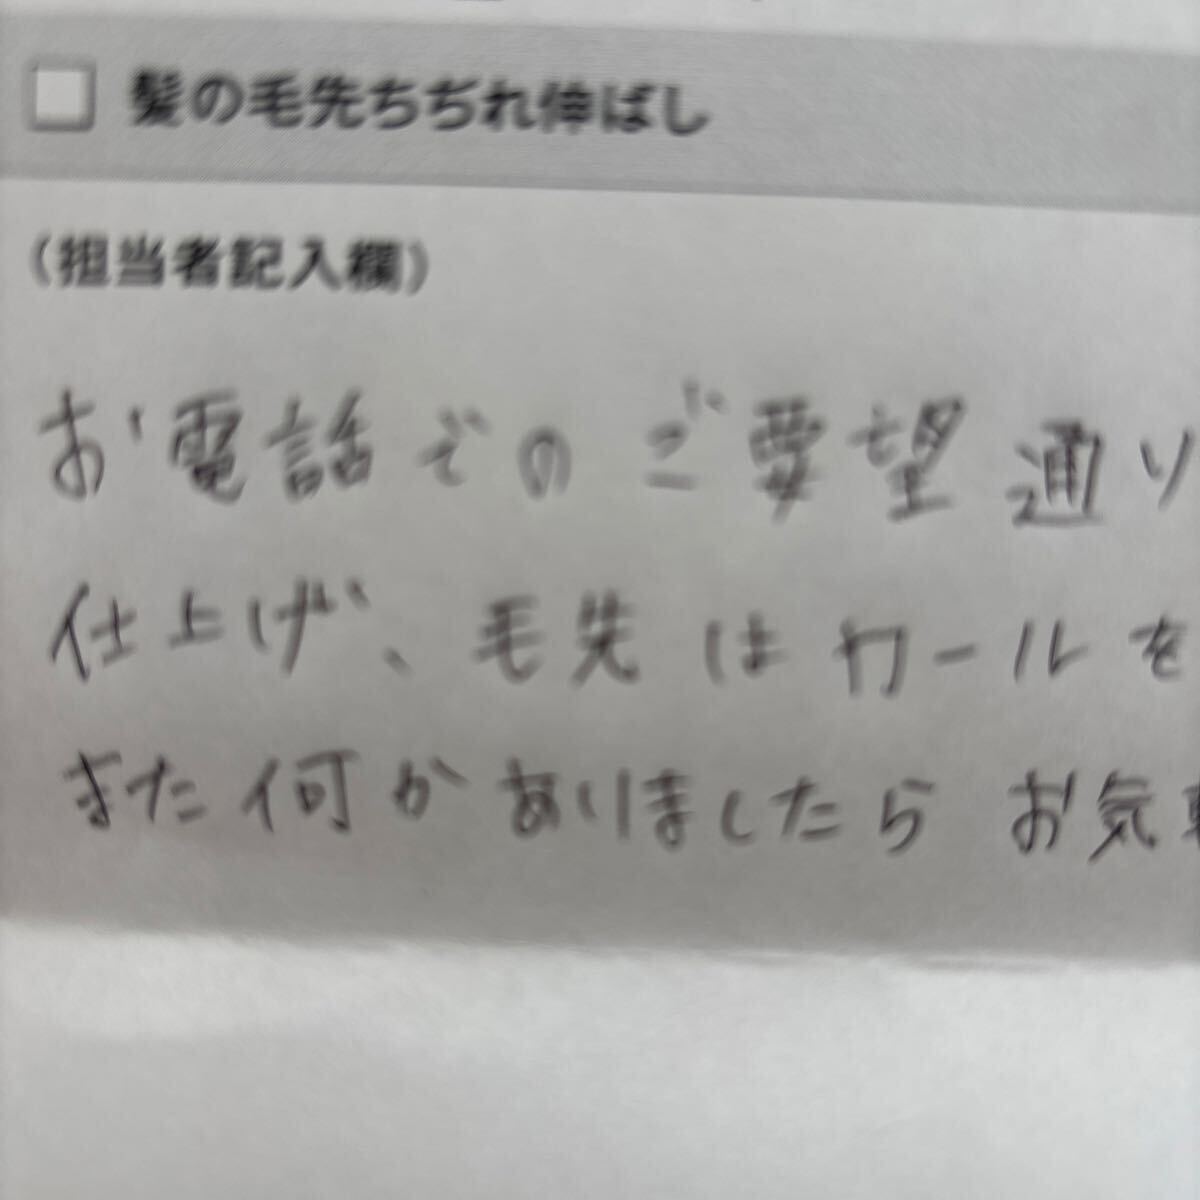 髪の毛先ちぢれ伸ばし
(担当者記入欄)
お電話でのご要望通り
仕上げ、毛先はカールを
また何かありましたらお気